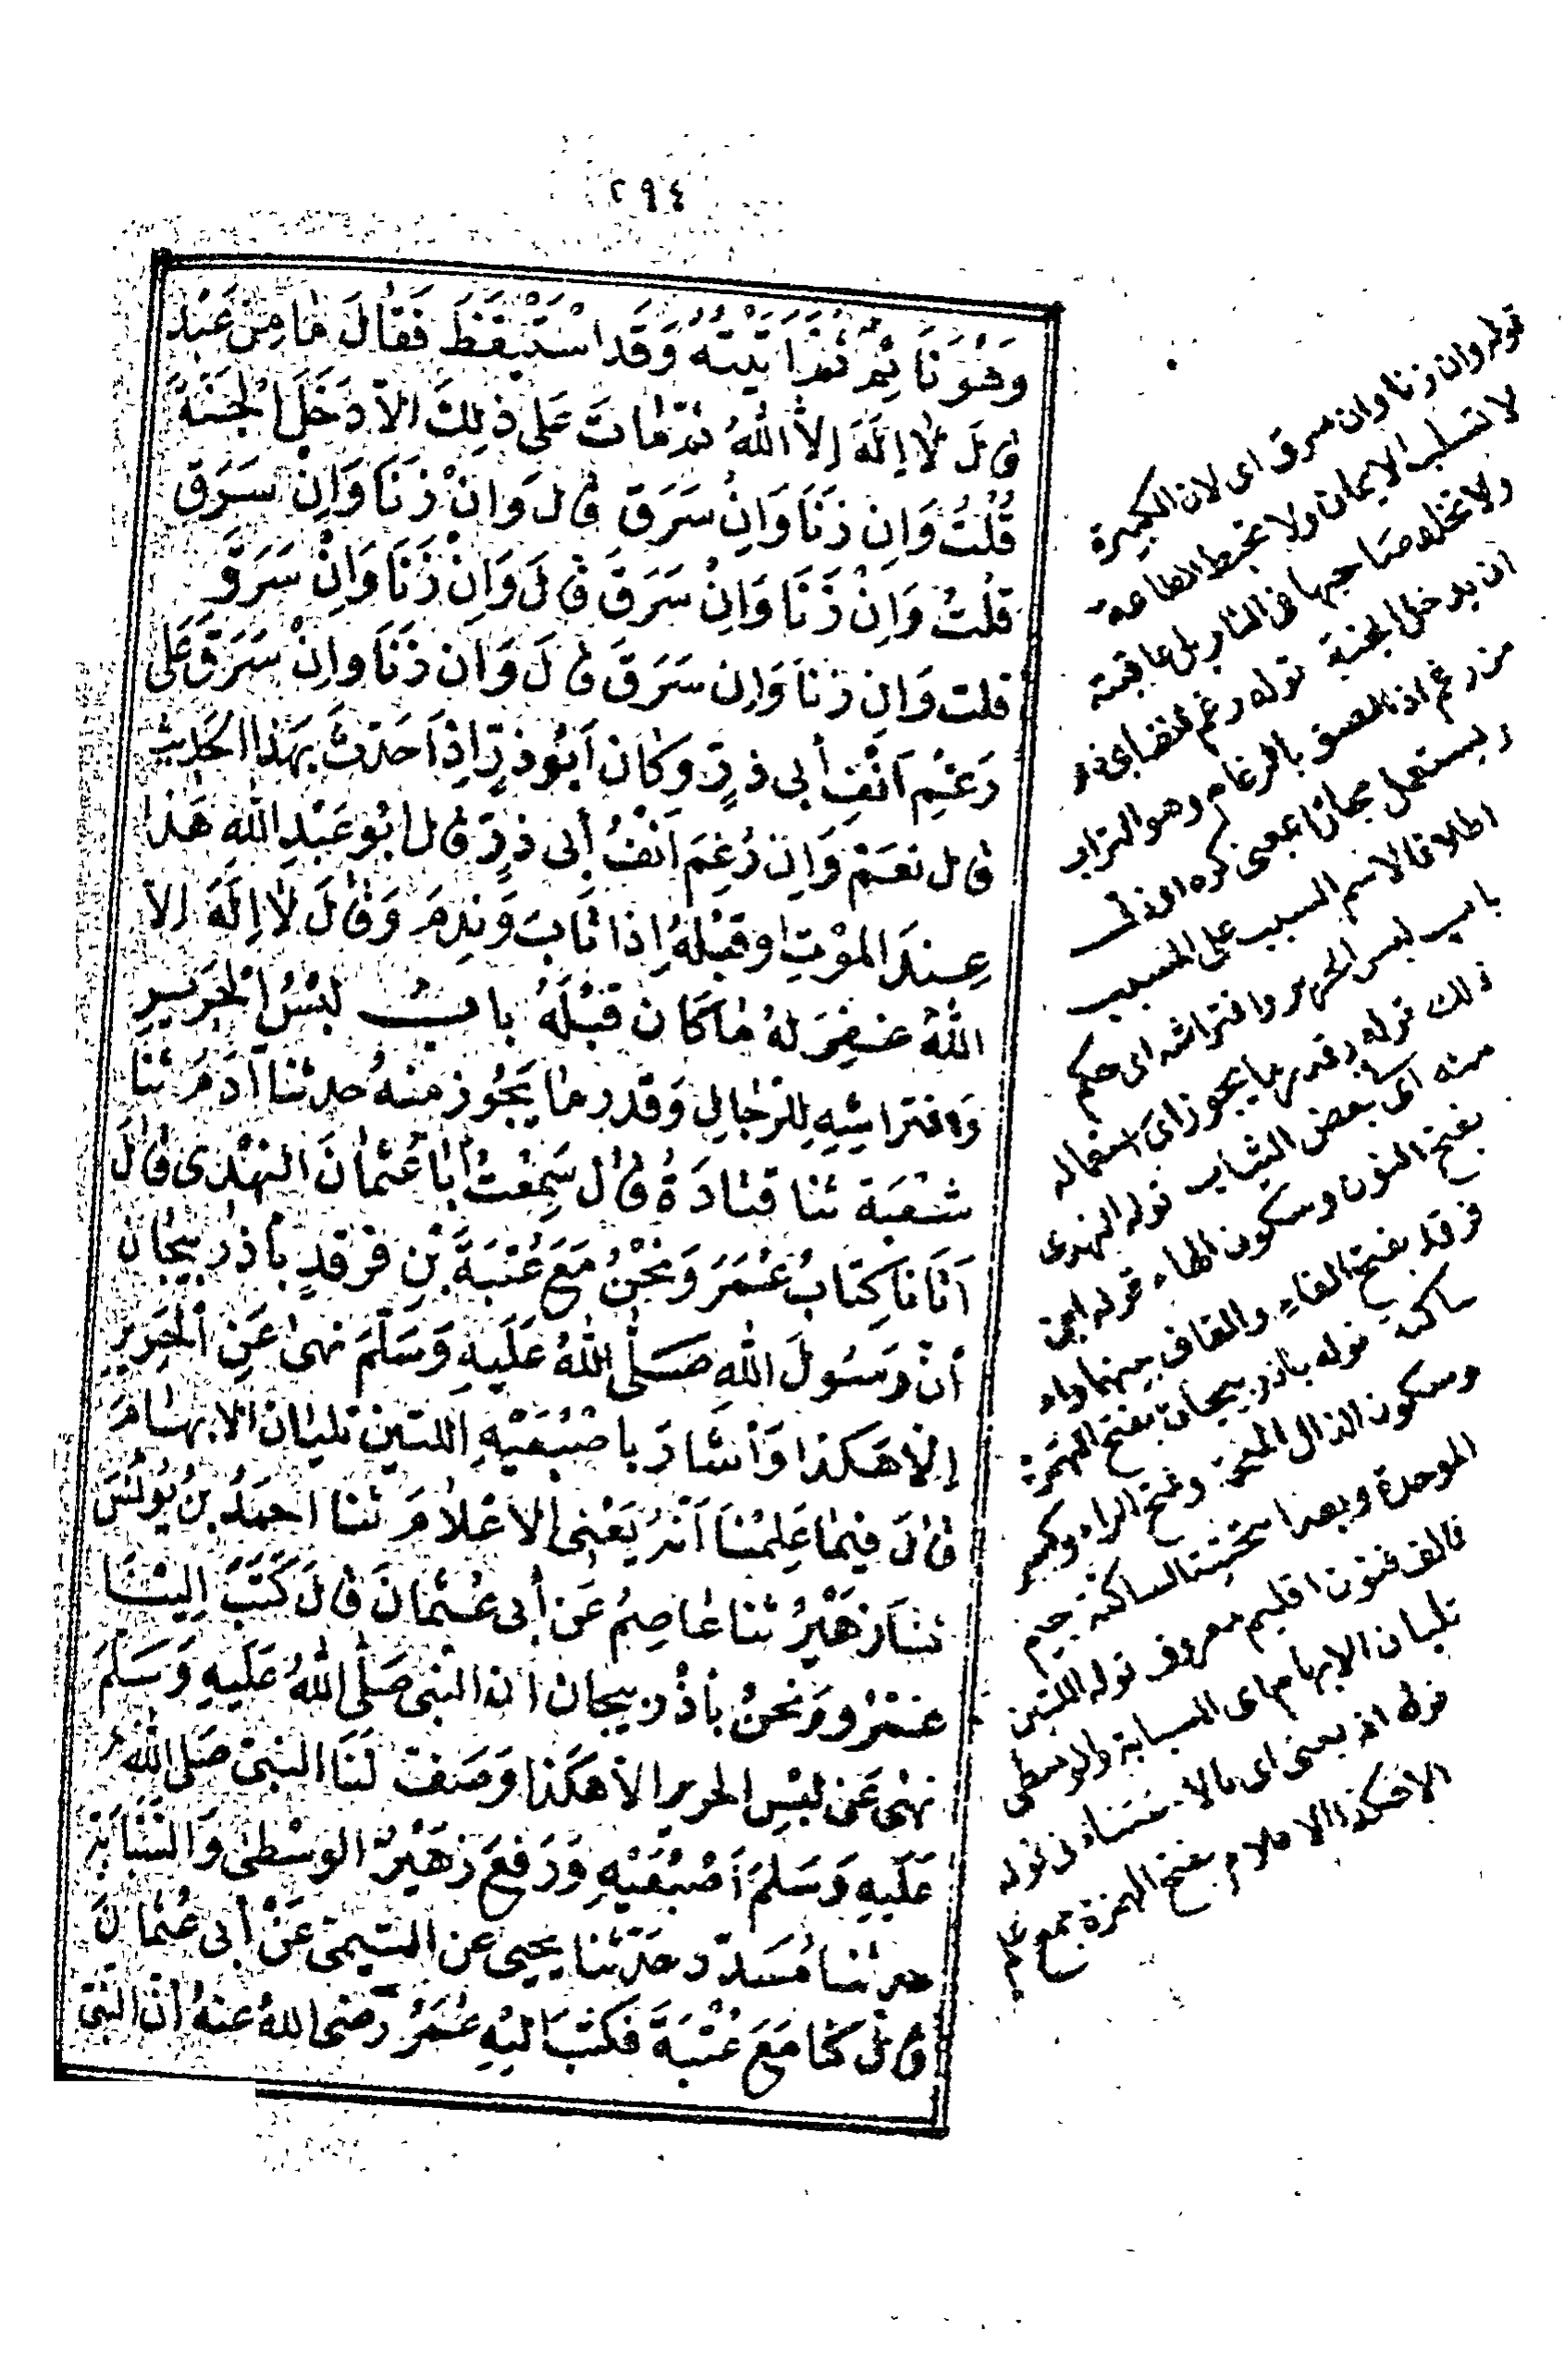 ٢٩٤
وَهُوَ نَائِمٌ ثُمَّ اَتَيْتُهُ وَقَدِ اسْتَيْقَظَ فَقَالَ مَا مِنْ عَبْدٍ
قَالَ لَا اِلَهَ اِلَّا اللهُ ثُمَّ مَاتَ عَلَى ذٰلِكَ الَّا دَخَلَ الْجَنَّةَ
قُلْتُ وَاِنْ زَنَا وَاِنْ سَرَقَ قَالَ وَاِنْ زَنَا وَاِنْ سَرَقَ
قُلْتُ وَاِنْ زَنَا وَاِنْ سَرَقَ قَالَ وَاِنْ زَنَا وَاِنْ سَرَقَ
قلت وَاِنْ زَنَا وَاِن سَرَقَ قَالَ وَاِن زَنَا وِاِنْ سَرَقَ عَلَى
رَغْمِ اَنْفِ أبى ذرٍّ وَكَانَ اَبُو ذرٍّ اِذَا حَدَّثَ بِهَذَا الحَدِيثِ
قال نَعَمْ وَاِن رَغِمَ اَنْفُ أبى ذرٍّ قال ابُو عَبْدِ اللهِ هَذَا
عِنْدَ المَوْتِ اَوقَبْلَهُ اِذَا تَابَ وَنَدِمَ وَقَالَ لَا اِلَهَ اِلا
اللهُ غُفِرَ لَهُ مَا كَانَ قَبْلَهُ بابُ لبْسُ الْحَرِيرِ
وَافتراشِهِ لِلرِّجَالِ وَقَدر مَا يَجُوز مِنْهُ حدثنا آدَمُ ثنا
شُعْبَةُ ثنا قَتَادَةُ قَال سَمِعْتُ أبَا عُثْمَانَ النَهْدِى قَالَ
اَتَانَا كِتَابُ عُمَرَ وَنَحْنُ مَعَ عُتْبَةَ بْنِ فَرقَدٍ بأذرَبِيجَانَ
أنَّ رَسُولَ اللهِ صَلَّى اللهُ عَلَيهِ وَسَلَّمَ نَهَى عَنِ الْحَرِيرِ
اِلَّا هَكَذَا وَأشَارَ بِاصْبُعَيْهِ اللتَين تَلِيَانِ الابهَامَ
قَالَ فِيمَا عَلِمْنَا اَنَّهُ يَعْنِى الاَعْلامَ ثنا احمَدُ بنُ يُونُسَ
ثنَا زُهَيْرُ ثنا عَاصِمُ عَن أبِى عُثْمَانَ قَالَ كَتَبَ اِلَيْنَا
عُمَرُ وَنَحْنُ بأذْرَبِيجان ان النبى صَلَّى اللهُ عَلَيهِ وَسَلَّمَ
نَهَى عَن لبْسِ الحرير الا هَكَذا وَصَفَّ لَنَا النَبِىُّ صَلى اللهُ
عَلَيهِ وَسَلَّمَ أصْبُعَيْهِ وَرَفَعَ زُهَيْرُ الوُسْطَى وَالسَّبَّابَةَ
حدثنا مُسَدّد حَدّثنا يحيى عن التَيمِىّ عَنْ أبى عُثْمَانَ
قال كُنّا مَعَ عُتْبَةَ فَكَتَبَ اليْهِ عُمَرُ رضى اللهُ عنهُ انّ النّبىّ
قوله وان زنا وان سرق اى لان الكبيرة
لا تسلب الايمان ولا تحبط الطاعة
ولا تخلد صاحبها فى النار بل عاقبته
ان يدخل الجنة قوله رغم انف ابى ذر
من رغم اذا لصق بالرغام وهو التراب
ويستعمل مجازا بمعنى كره او ذل
اطلاقا لاسم السبب على المسبب
باب لبس الحرير وافتراشه اى حكم
ذلك قوله وقدر ما يجوز اى استعماله
منه اى بعض الثياب قوله النهدى
بفتح النون وسكون الهاء قوله ابن
فرقد بفتح الفاء والقاف بينهما راء
ساكنة قوله باذربيجان بفتح الهمزة
وسكون الذال المعجمة وفتح الراء وكسر
الموحدة وبعدا تحتيتة الساكنة جيم
فالف فنون اقليم معروف قوله اللتين
تليان الابهام اى السبابة والوسطى
قوله انه يعنى اى بالاستثناء فى قوله
الا هكذا الاعلام بفتح الهمزة جمع علم